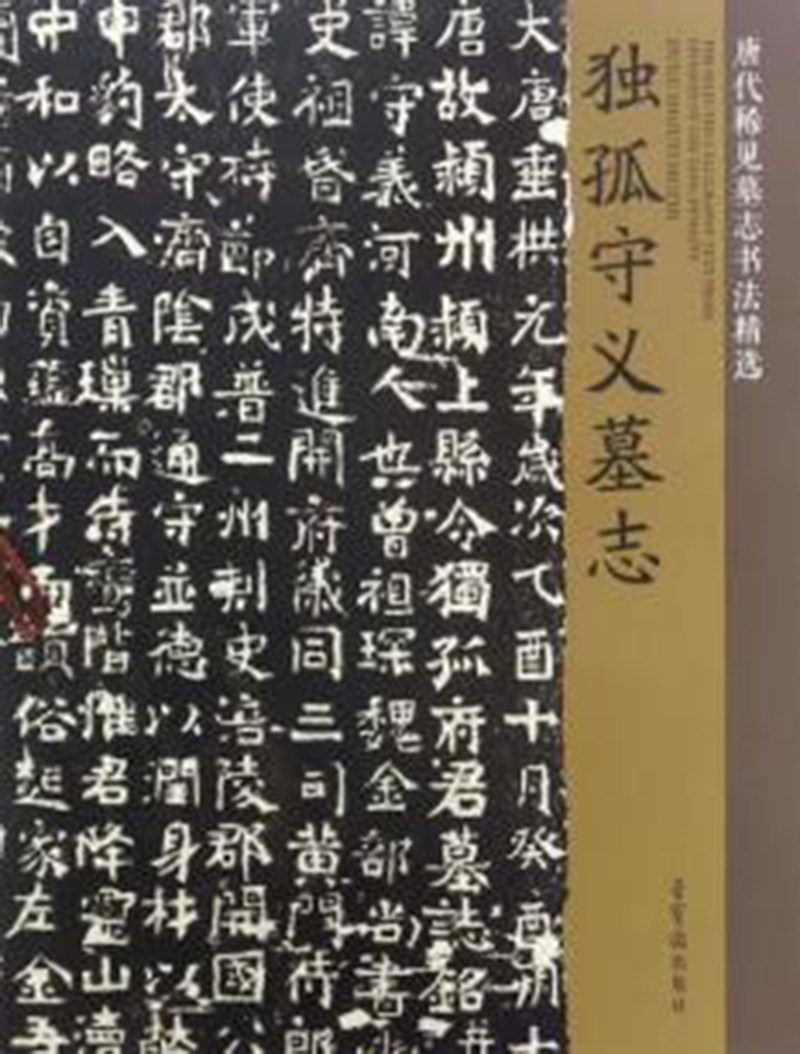 唐代稀见墓志书法精选
独孤守义墓志
荣宝斋出版社
大唐垂拱元年歲次乙酉十月癸酉朔十
唐故潁州潁上縣令獨孤府君墓誌銘并
諱守義河南人也曾祖琛魏金部尚書
史祖昏齊特進開府儀同三司黄門侍郎
軍使持節成普二州刾史涪陵郡開國公
郡太守齊陰郡通守並德以潤身林以
申豹略入青璅而待寶階惟君降靈山瀆
中和以自資蘊高才而頤俗起家左金吾